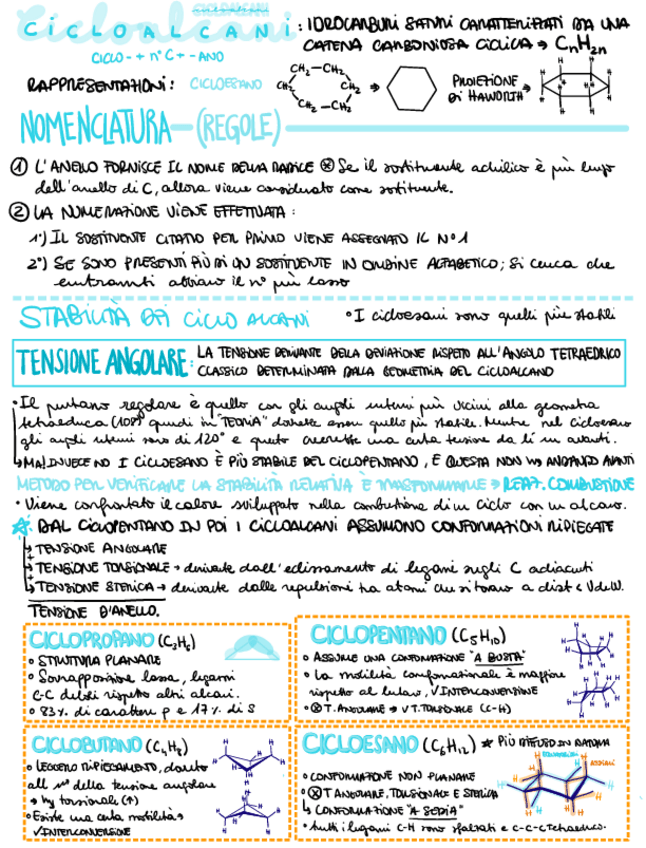 CICLOALCANI: IDROCARBURI SATURI CARATTERIZZATI DA UNA
CATENA CARBONIOSA CICLICA → CnH2n
CICLO- + n° C + -ANO
RAPPRESENTAZIONI: CICLOESANO
CH2-CH2
CH2 CH2
CH2-CH2
PROIEZIONE
DI HAWORTH
NOMENCLATURA-(REGOLE)
① L'ANELLO FORNISCE IL NOME DELLA RADICE ⊗ Se il sostituente achilico è più lungo
dell'anello di C, allora viene considerato come sostituente.
② LA NUMERAZIONE VIENE EFFETTUATA:
1°) IL SOSTITUENTE CITATO PER PRIMO VIENE ASSEGNATO IL N°1
2°) SE SONO PRESENTI PIÙ DI UN SOSTITUENTE IN ORDINE ALFABETICO; Si cerca che
entrambi abbiano il n° più basso
STABILITÀ DEI CICLO ALCANI • I cicloesani sono quelli più stabili
TENSIONE ANGOLARE: LA TENSIONE DERIVANTE DELLA DEVIAZIONE RISPETTO ALL'ANGOLO TETRAEDRICO
CLASSICO DETERMINATA DALLA GEOMETRIA DEL CICLOALCANO
• Il pentano regolare è quello con gli angoli interni più vicini alla geometria
tetraedrica (108°) quindi in "TEORIA" dovrebbe essere quello più stabile. Mentre nel cicloesano
gli angoli interni sono di 120° e questo creerebbe una certa tensione da lì in avanti.
↳ MA! INVECE NO I CICLOESANO È PIÙ STABILE DEL CICLOPENTANO, E QUESTA NON ANDANDO AVANTI
METODO PER VERIFICARE LA STABILITÀ RELATIVA È TRASFORMARE → REAZ. COMBUSTIONE
• Viene confrontato il calore sviluppato nella combustione di un ciclo con un alcano.
☆: DAL CICLOPENTANO IN POI I CICLOALCANI ASSUMONO CONFORMAZIONI RIPIEGATE
↳ TENSIONE ANGOLARE
+
↳ TENSIONE TORSIONALE → derivate dall'eclissamento di legami sugli C adiacenti
+
↳ TENSIONE STERICA → derivate dalle repulsioni tra atomi che si trovano a dist < VdW.
TENSIONE D'ANELLO.
CICLOPROPANO (C3H6)
• STRUTTURA PLANARE
• Sovrapposizione bassa, legami
C-C deboli rispetto altri alcani.
• 83% di carattere p e 17% di S
CICLOPENTANO (C5H10)
• ASSUME UNA CONFORMAZIONE "A BUSTA"
• La mobilità conformazionale è maggiore
rispetto al butano, √INTERCONVERSIONE
• ⊗ T. ANGOLARE → √ T. TORSIONALE (C-H)
CICLOBUTANO (C4H8)
• LEGGERO RIPIEGAMENTO, dovuto
all' della tensione angolare
→ torsionale (↑)
• Esiste una certa mobilità →
√INTERCONVERSIONE
CICLOESANO (C6H12) ★ PIÙ DIFFUSO IN NATURA
• CONFORMAZIONE NON PLANARE
• ⊗ T ANGOLARE, TORSIONALE E STERICA
↳ CONFORMAZIONE "A SEDIA"
• tutti i legami C-H sono sfalsati e C-C-C tetraedrico.